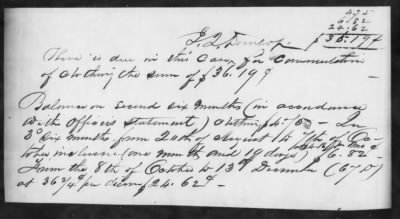 4.75
6.82
24.62
J. Q. Dunlop. $36.19¢
There is due in this case for Commutation
of clothing the sum of $36.19¢
Balance on second six months (in accordance
with Officers statement) clothing $4.75 - In
3d six months from 20th of August to 7th of Oc-
tober inclusive (one month and 19 days) $6.82 -
From the 8th of October to 13th December (67 D)
at 36 3/4 per diem $24.62¢ -